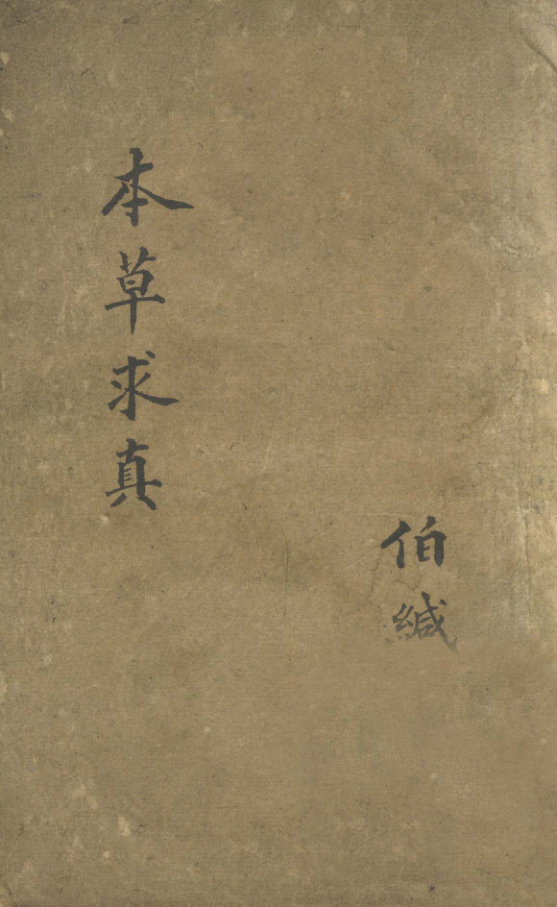 本草求真
伯緘